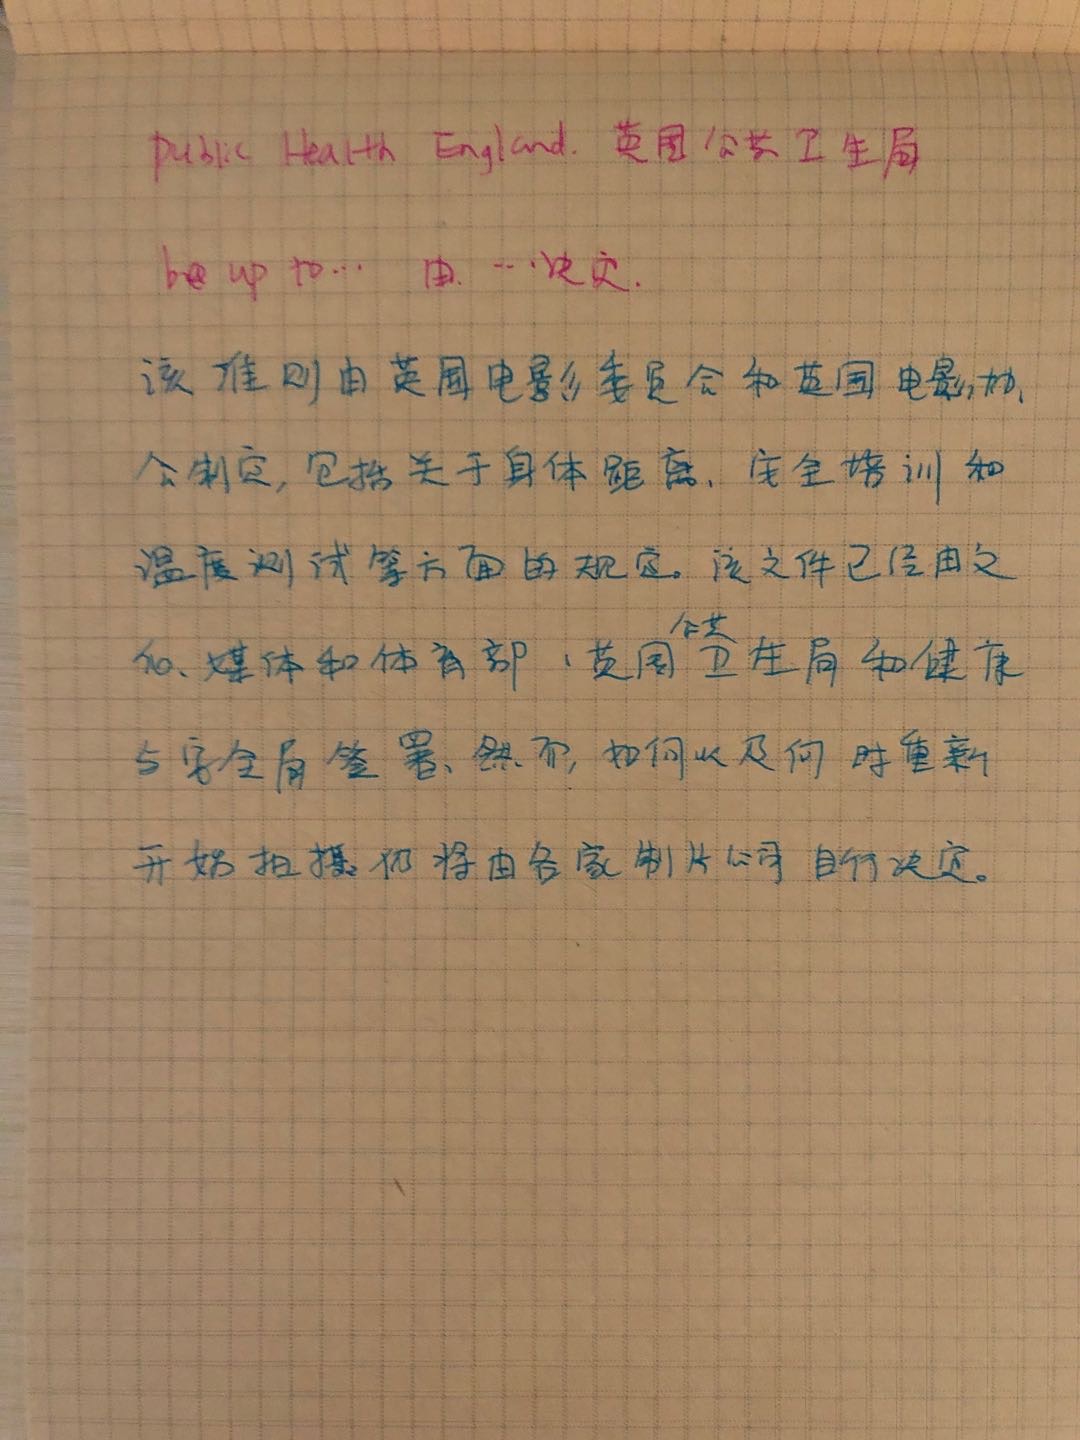 Public Health England. 英国公共卫生局
be up to... 由...决定.
该准则由英国电影委员会和英国电影协
会制定, 包括关于身体距离、安全培训和
温度测试等方面的规定。该文件已经由文
化、媒体和体育部、英国公共卫生局和健康
与安全局签署、然而, 如何以及何时重新
开始拍摄仍将由各家制片公司自行决定。